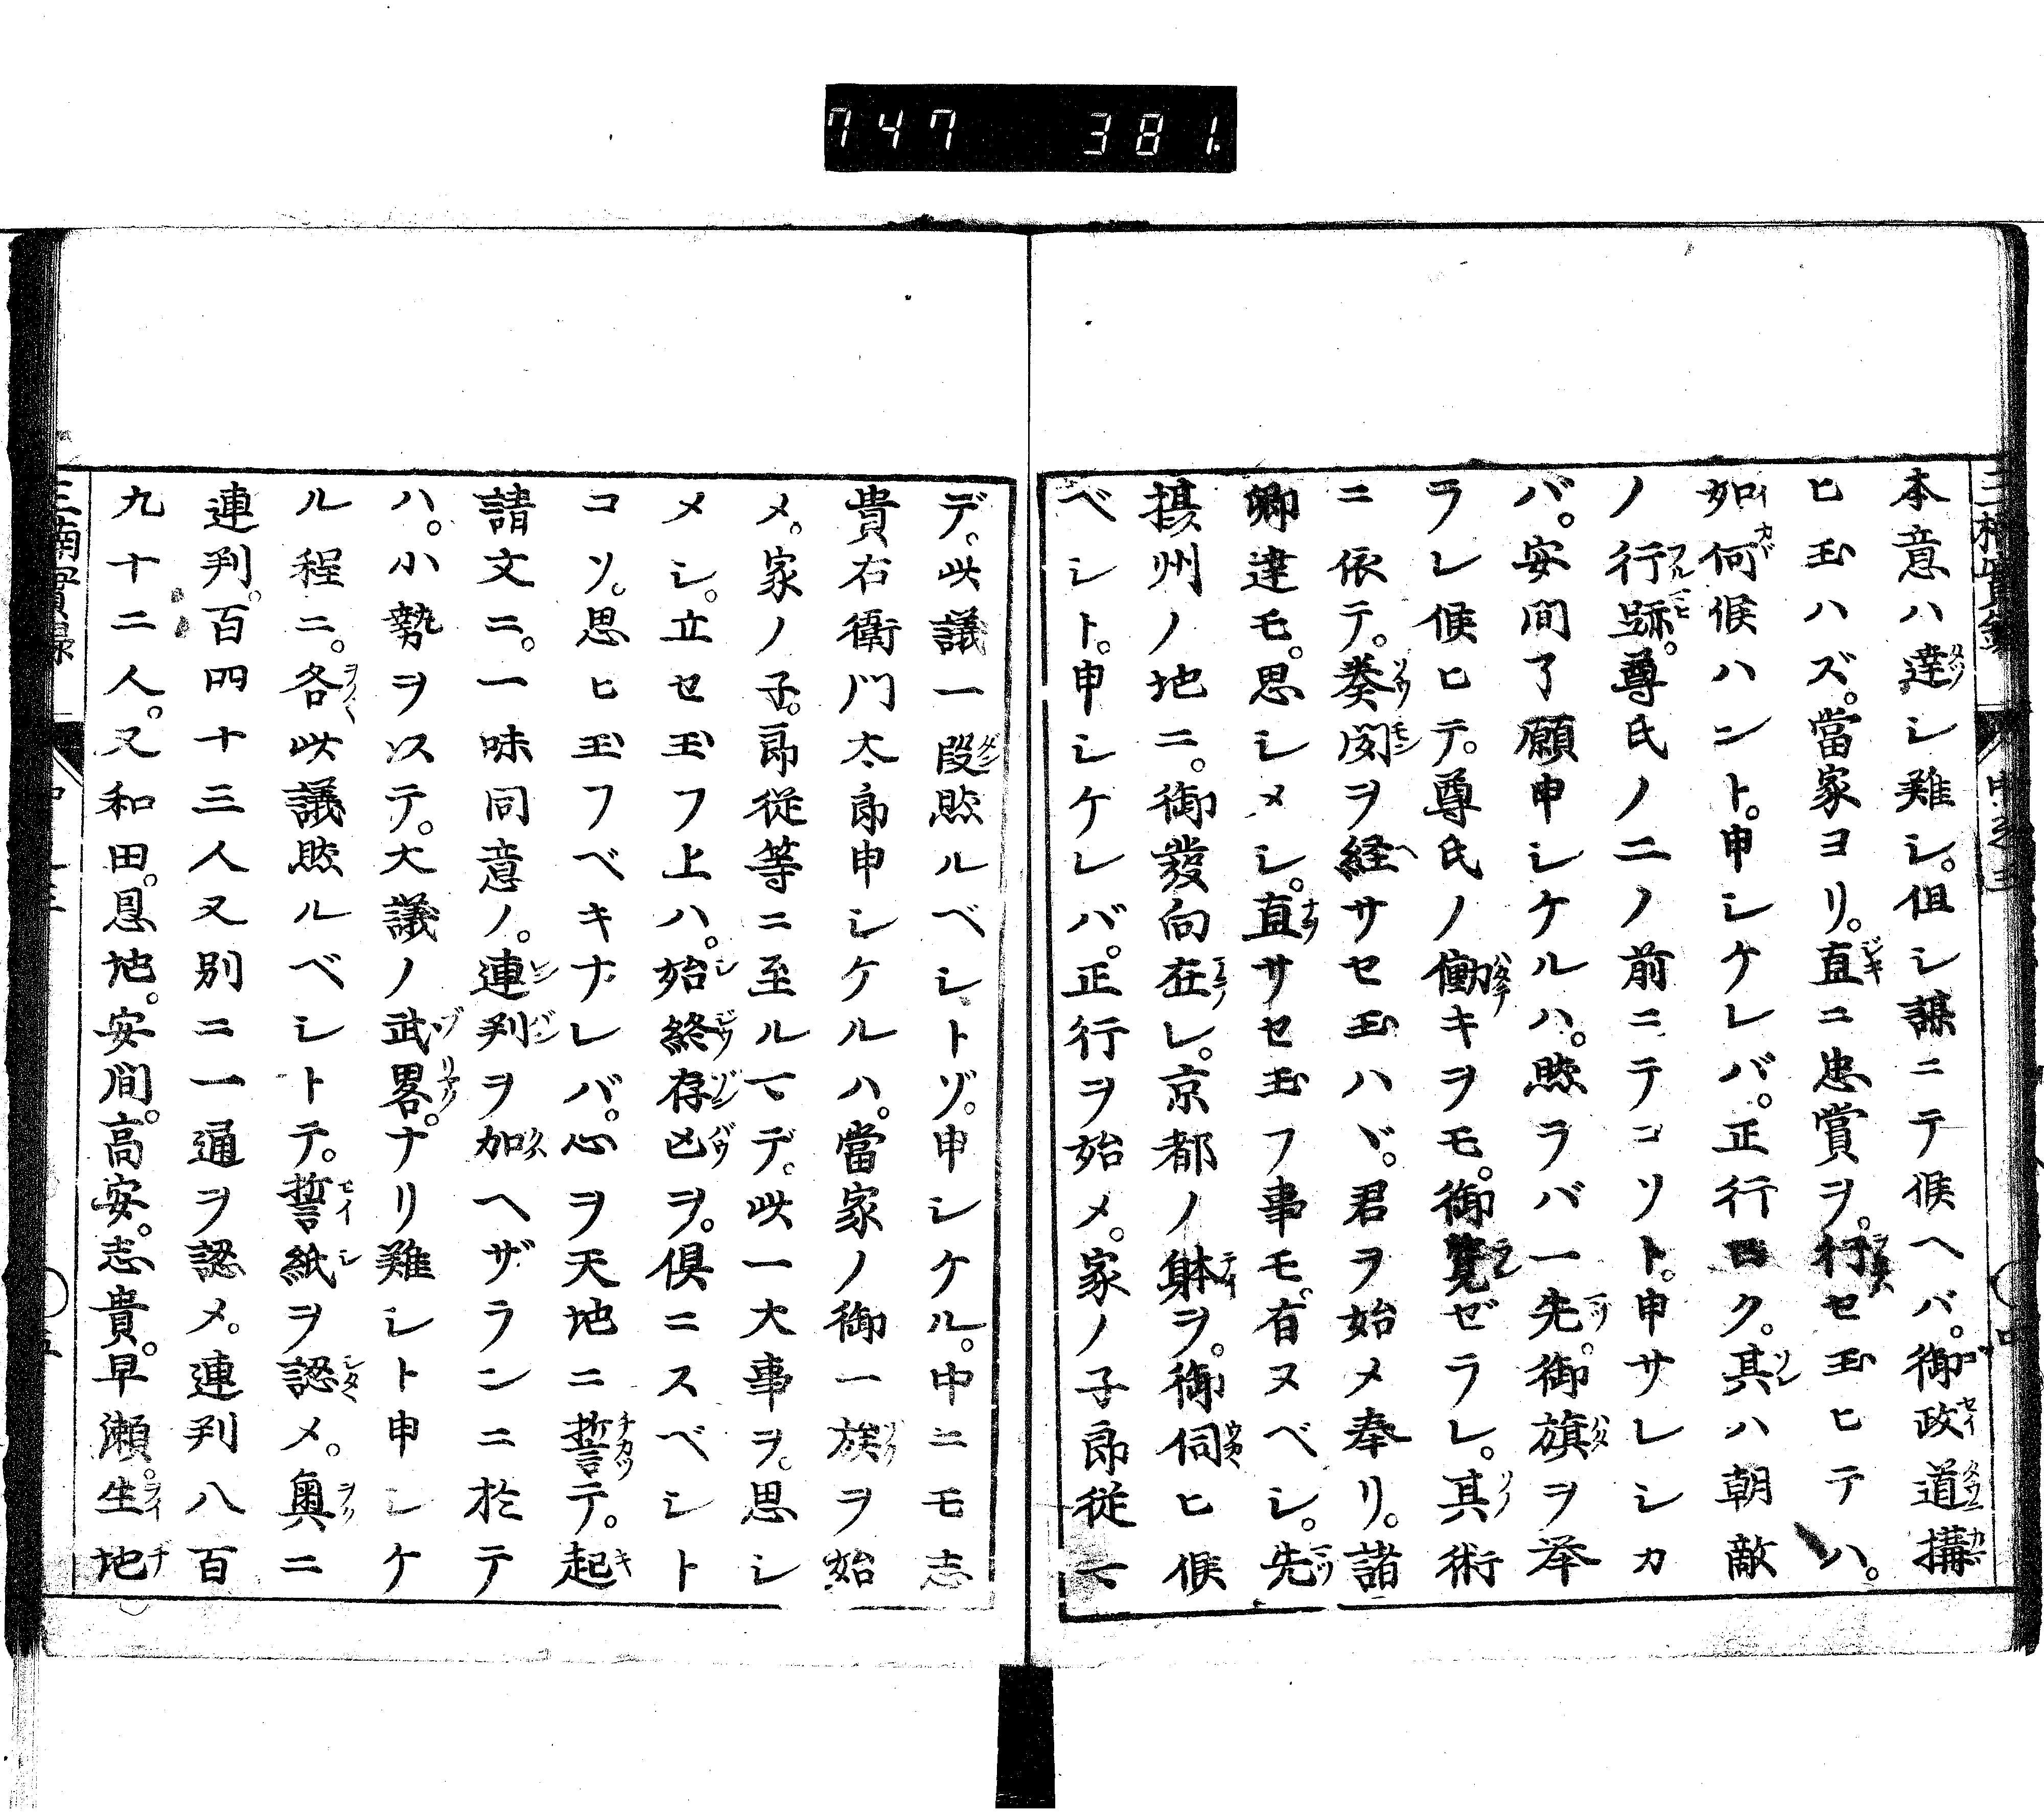 747 381.
本意ハ達シ難シ。但シ謀ニテ候ヘバ。御政道搆
ヒ玉ハズ。當家ヨリ。直ニ忠賞ヲ。行セ玉ヒテハ。
如何候ハント。申シケレバ。正行曰ク。其ハ朝敵
ノ行跡。尊氏ノ二ノ前ニテコソト。申サレシカ
バ。安間了願申シケルハ。然ラバ一先。御旗ヲ举
ラレ候ヒテ。尊氏ノ働キヲモ。御覽ゼラレ。其術
ニ依テ。奏聞ヲ経サセ玉ハヾ。君ヲ始メ奉リ。諸
卿達モ。思シメシ。直サセ玉フ事モ。有ヌベシ。先
摂州ノ地ニ。御發向在レ。京都ノ躰ヲ。御伺ヒ候
ベシト。申シケレバ。正行ヲ始メ。家ノ子郎従マ
デ。此議一段然ルベシトゾ。申シケル。中ニモ志
貴右衛門太郎申シケルハ。當家ノ御一族ヲ始
メ。家ノ子。郎従等ニ至ルマデ。此一大事ヲ。思シ
メシ。立セ玉フ上ハ。始終存亡ヲ。倶ニスベシト
コソ。思ヒ玉フベキナレバ。心ヲ天地ニ誓テ。起
請文ニ。一味同意ノ。連判ヲ加ヘザランニ於テ
ハ。小勢ヲ以テ。大議ノ武畧。ナリ難シト申シケ
ル程ニ。各此議然ルベシトテ。誓紙ヲ認メ。奥ニ
連判。百四十三人又別ニ一通ヲ認メ。連判八百
九十二人。又和田。恩地。安間。高安。志貴。早瀬。生地